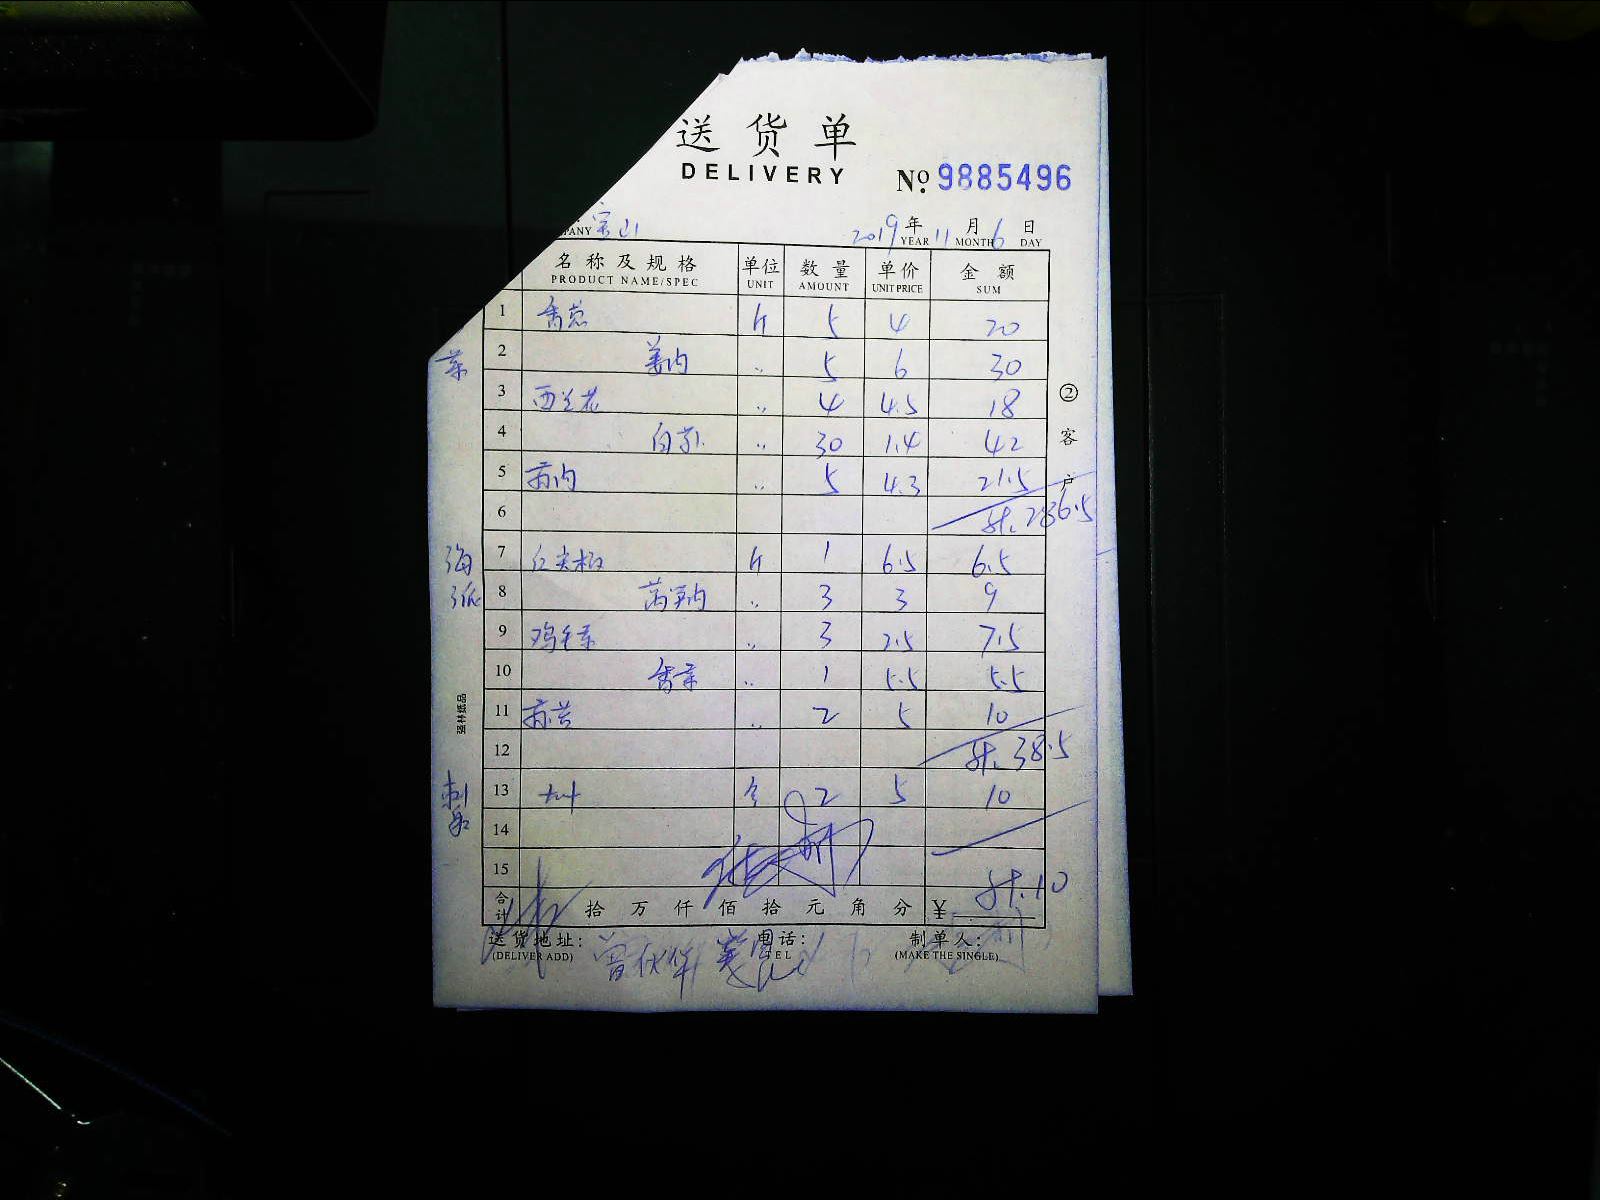 送货单
DELIVERY
№ 9885496
PANY 宝山 2019 年 YEAR 11 月 MONTH 6 日 DAY
名称及规格 单位 数量 单价 金额
PRODUCT NAME/SPEC UNIT AMOUNT UNIT PRICE SUM
1 香葱 斤 5 4 20
菜 2 姜肉 〃 5 6 30
3 西兰花 〃 4 4.5 18
4 白 〃 30 1.4 42
5 肉 〃 5 4.3 21.5
6 计. 286.5
海 7 红尖椒 斤 1 6.5 6.5
派 8 肉 〃 3 3 9
9 鸡毛菜 〃 3 2.5 7.5
10 香菜 〃 1 5.5 5.5
11 〃 2 5 10
12 计. 38.5
刺身 13 2 5 10
14
15 计. 10
合计 拾 万 仟 佰 拾 元 角 分 ¥
送货地址: 电话: 制单人:
(DELIVER ADD) TEL (MAKE THE SINGLE)
② 客户
强林纸品